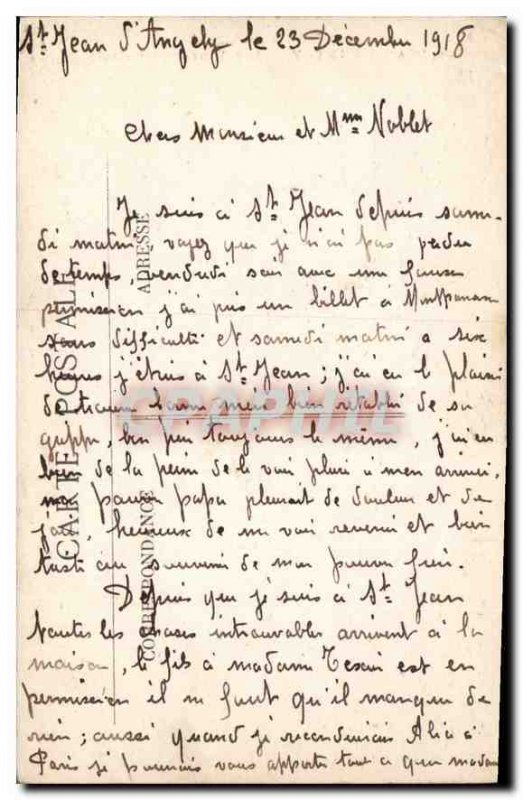 St Jean d'Angely le 23 Décembre 1918
Chers Monsieur et Mme Noblet
Je suis à St Jean depuis same-
di matin, voyez que je n'ai pas perdu
de temps, vendredi soir avec une fausse
permission j'ai pris un billet à Montparnasse
sans difficulté et samedi matin a six
heures j'étais à St Jean; j'ai eu le plaisir
de trouver bien rétabli de sa
grippe, toujours le même, j'ai eu
bien de la peine de le voir pleurer à mon arrivée,
mon pauvre papa pleurait de douleur et de
joie, heureux de me voir revenir et bien
triste au souvenir de mon pauvre frère.
Depuis que je suis à St Jean
toutes les choses introuvables arrivent à la
maison, le fils à madame est en
permission il ne faut qu'il manque de
rien; aussi quand je reconduirais Alice à
Paris je pourrais vous apporter tout ce que madame
CARTE POSTALE
ADRESSE
CORRESPONDANCE
CARAPHIL